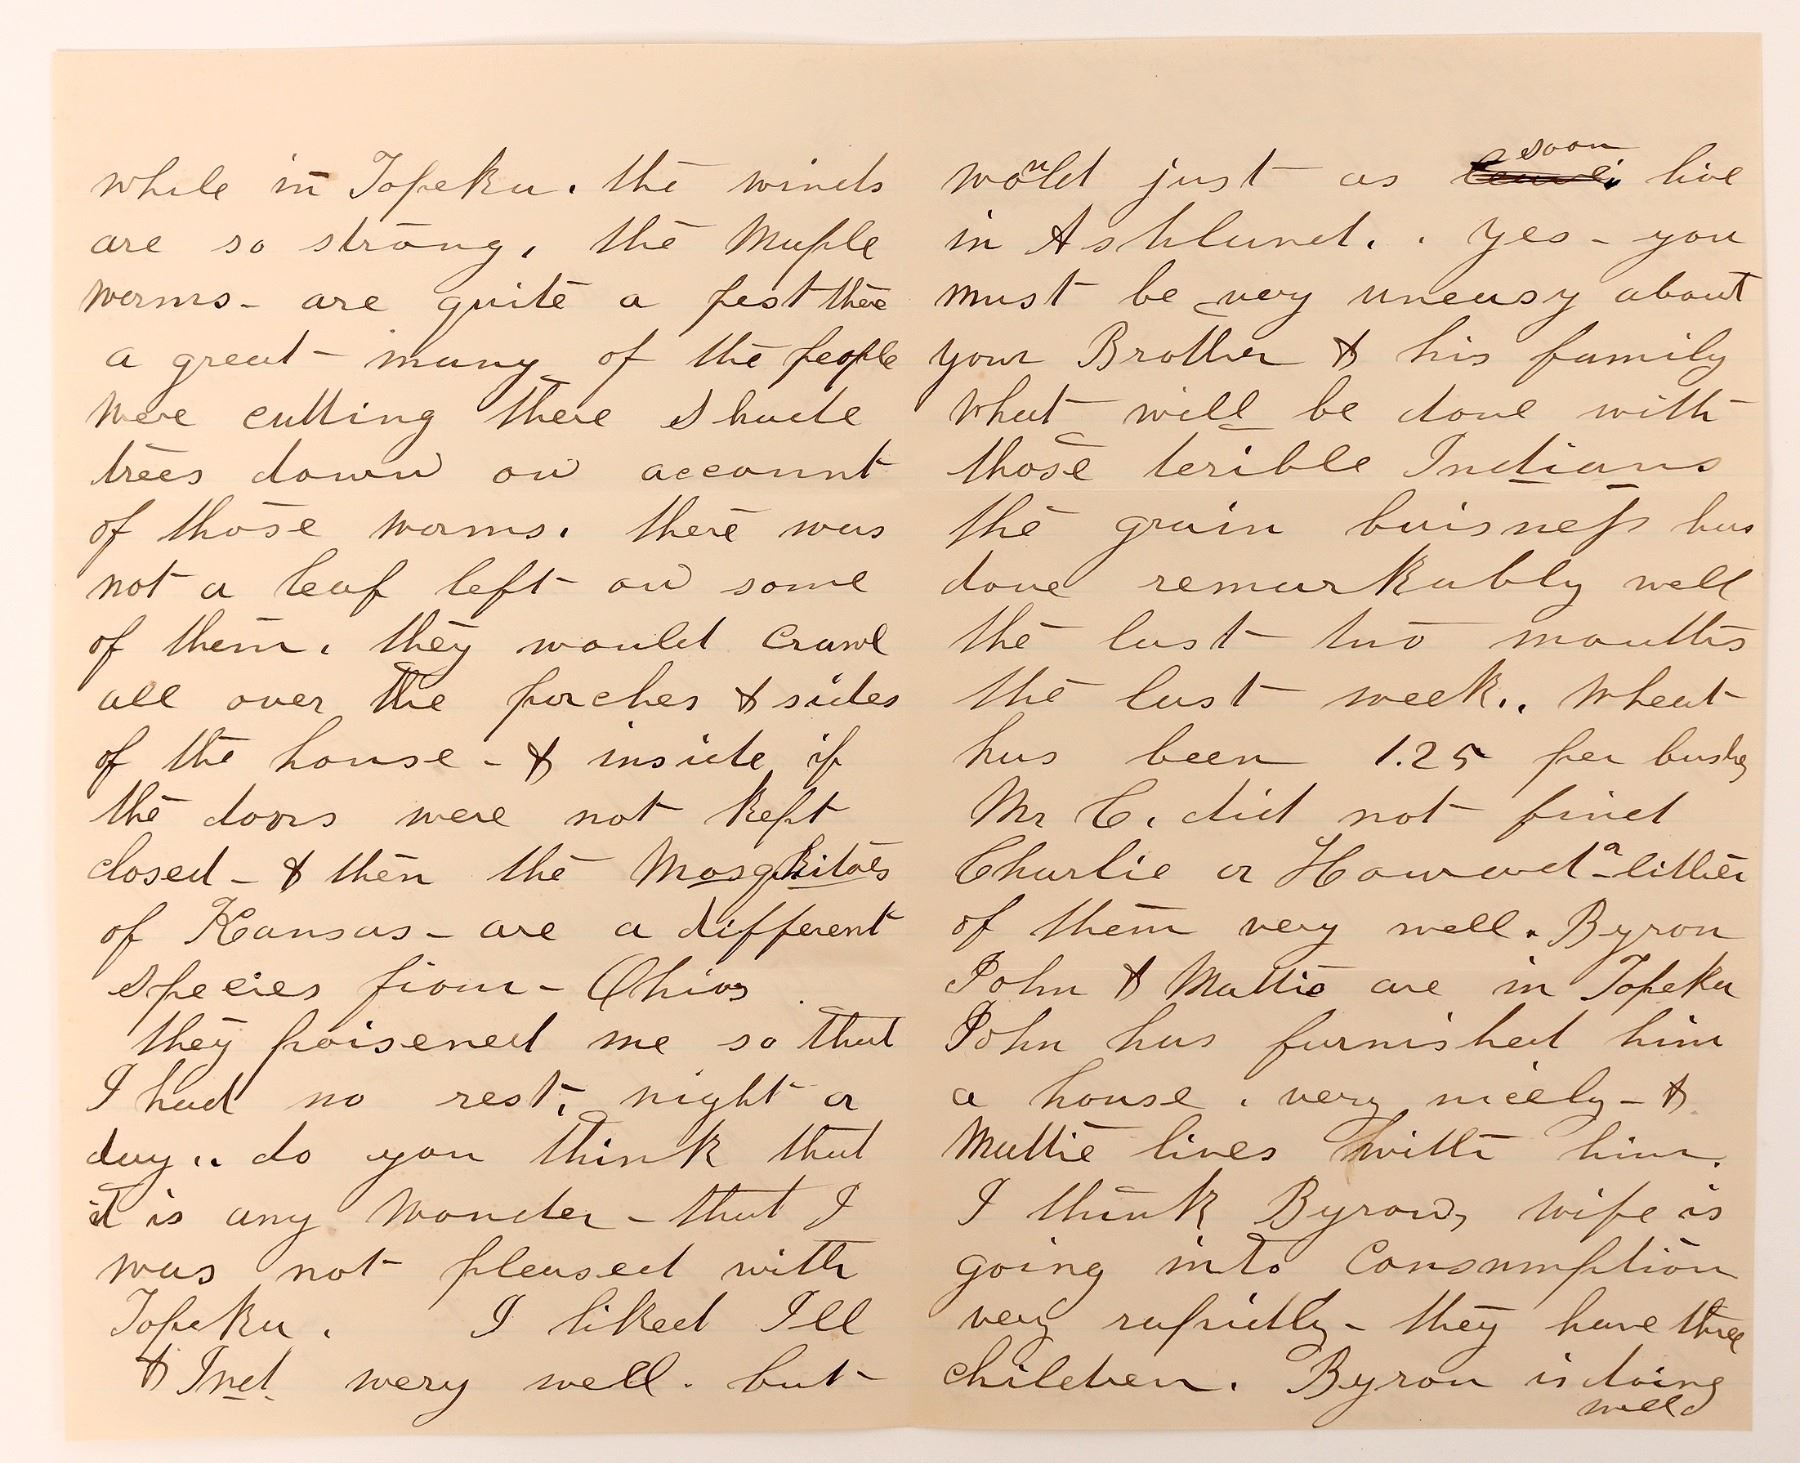 while in Topeka. the winds
are so strong, the Maple
worms - are quite a pest there
a great - many of the people
were cutting there shade
trees down on account
of those worms. there was
not a leaf left on some
of them. they would crawl
all over the porches & sides
of the house - & inside if
the doors were not kept
closed - & then the Mosqkitoes
of Kansas - are a different
species from - Ohios
they poisened me so that
I had no rest, night or
day.. do you think that
it is any wonder - that I
was not pleased with
Topeka. I liked Ill
& Ind. very well. but -
would just as soon live
in Ashland. . yes - you
must be very uneasy about
your Brother & his family
what will be done with
those terible Indians
the grain buisness has
done remarkably well
the last two months
the last week.. Wheat
has been 1.25 per bushel
Mr C. did not find
Charlie or Howard - either
of them very well. Byron
John & Mattie are in Topeka
John has furnished him
a house. very nicely - &
Mattie lives with him.
I think Byrons wife is
going into Consumption
very rapidly - they have three
children. Byron is doing
well